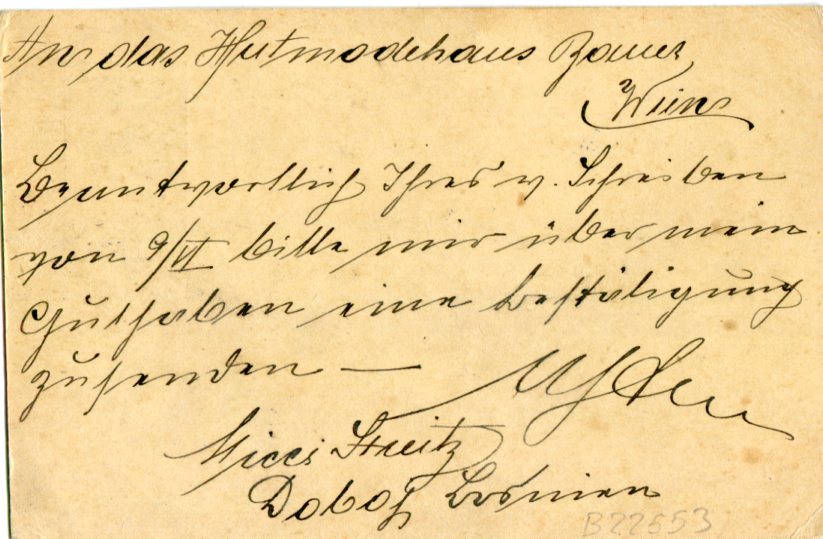 An das Hutmodehaus Bauer
Wien
Beantwortlich Ihres w. Schreiben
von 9/VI bitte mir über mein
Guthaben eine Bestätigung
zusenden —
Micci
Doboj Bosnien
B22553